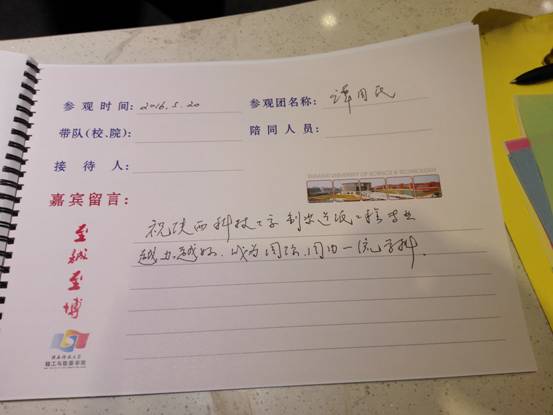 参观时间: 2016.5.20
参观团名称: 谭国民
带队(校、院):
陪同人员:
接待人:
SHAANXI UNIVERSITY OF SCIENCE & TECHNOLOGY
嘉宾留言:
祝陕西科技大学制浆造纸工程专业
越办越好,成为国际、国内一流学科.
至诚至博
陕西科技大学
轻工与能源学院